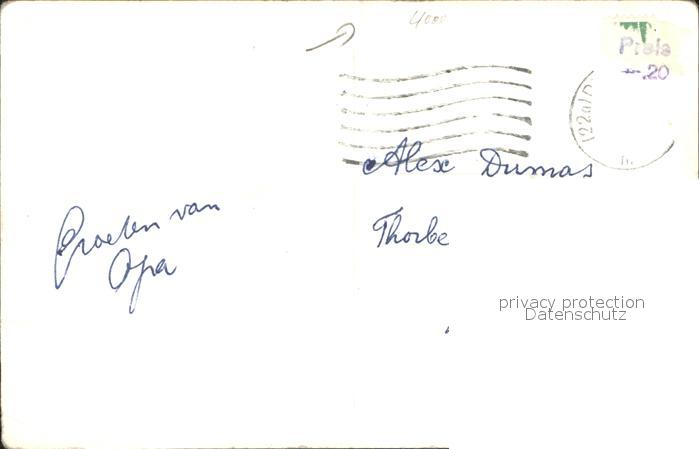 4000
Preis
-.20
Alex Dumas
Groeten van
Opa
Thorbe
privacy protection
Datenschutz